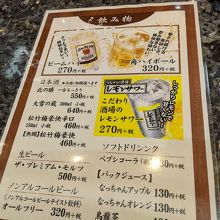 飲み物
ビームハイボール
270円+税
角ハイボール
320円+税
日本酒
北の勝
550円+税
大雪の蔵 300ml
640円+税
松竹梅豪快辛口
150ml 小瓶 460円+税
【熱燗】松竹梅豪快
460円+税
レモンサワー
こだわり
酒場の
レモンサワー
270円+税
生ビール
ザ・プレミアム・モルツ
500円+税
ノンアルコールビール
（ノンアルコールビールテイスト飲料）
オールフリー 320円+税
ソフトドリンク
ペプシコーラ
【パックジュース】
なっちゃんアップル 130円+税
なっちゃんオレンジ 130円+税
烏龍茶